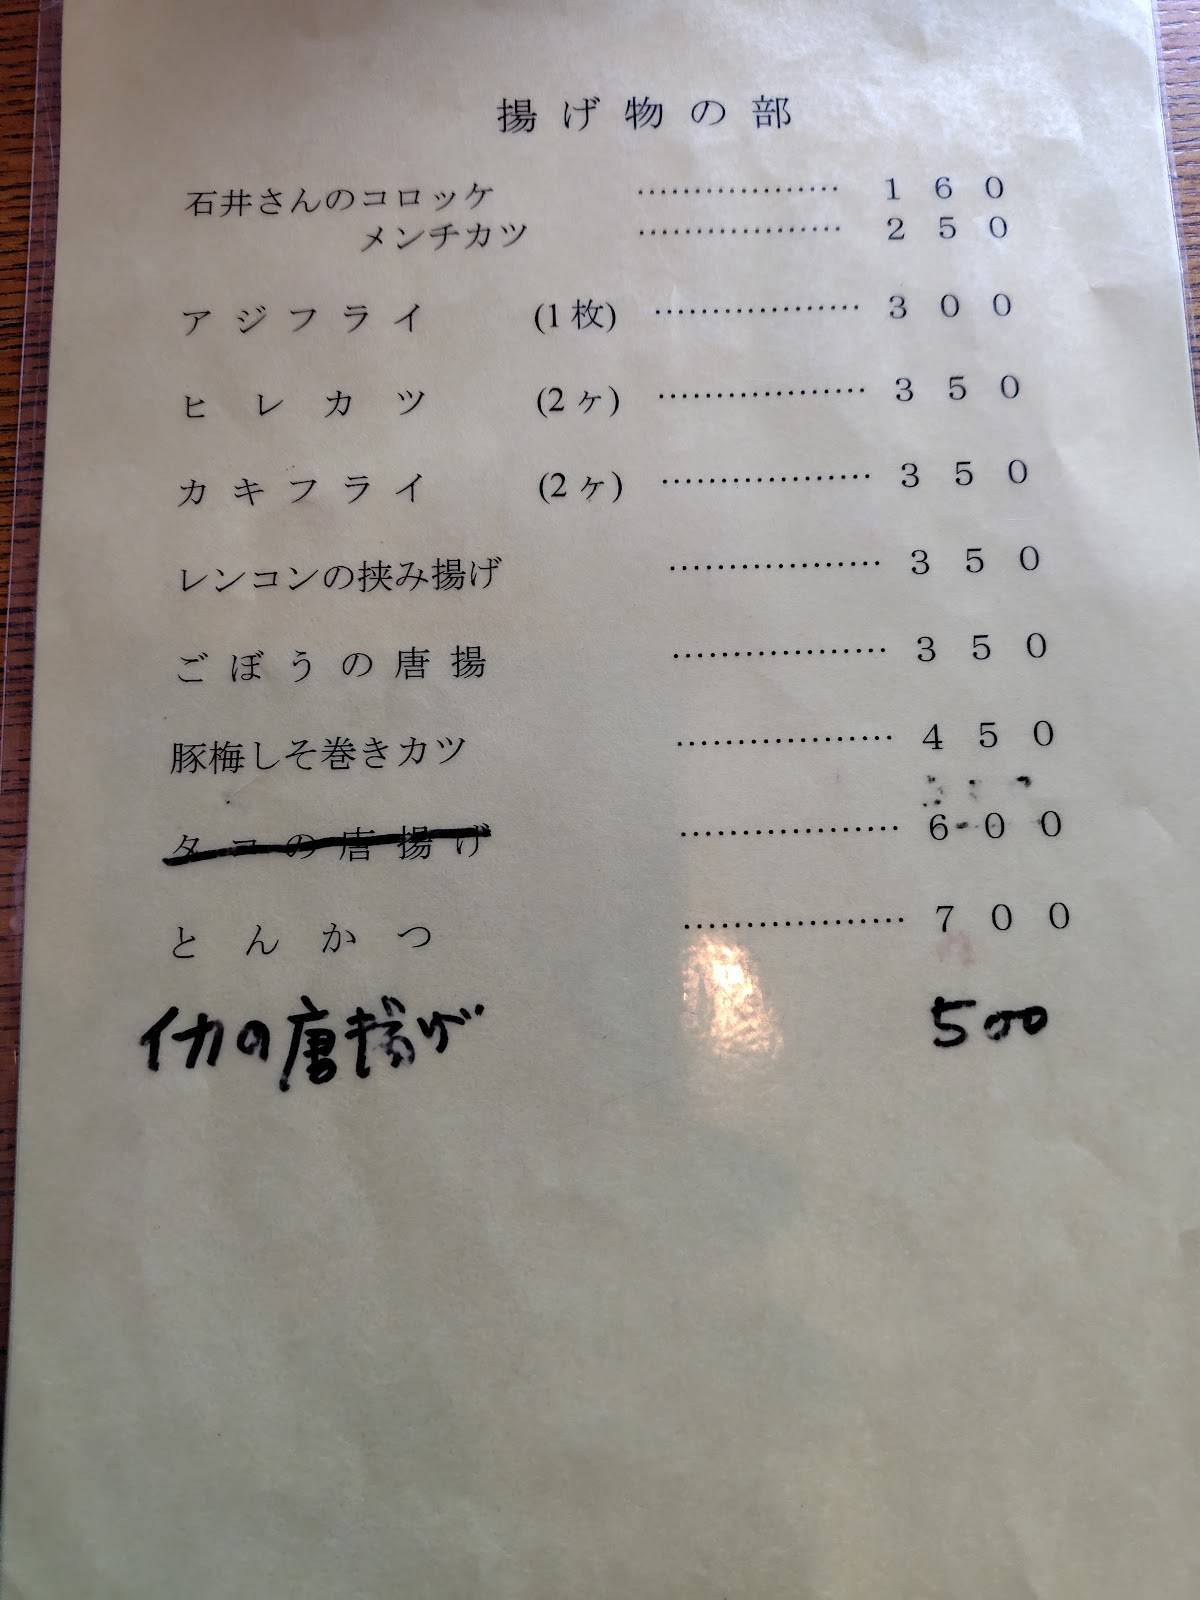 揚げ物の部
石井さんのコロッケ ……………… 160
メンチカツ ……………… 250
アジフライ (1枚) ……………… 300
ヒレカツ (2ヶ) ……………… 350
カキフライ (2ヶ) ……………… 350
レンコンの挟み揚げ ……………… 350
ごぼうの唐揚 ……………… 350
豚梅しそ巻きカツ ……………… 450
タコの唐揚げ ……………… 600
とんかつ ……………… 700
イカの唐揚げ 500